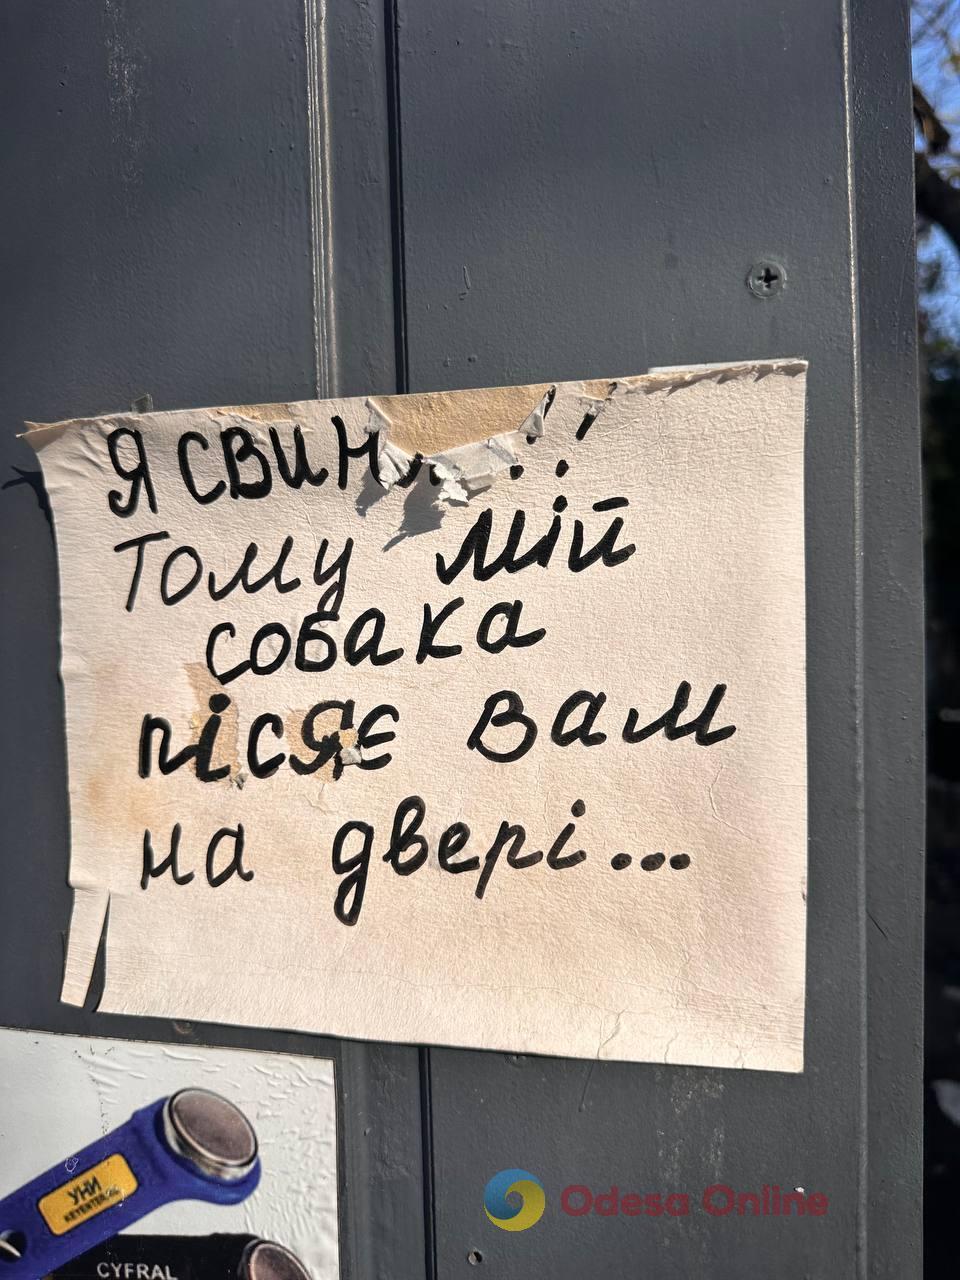 Я СВИН !!
Тому мій
собака
пісяє вам
на двері...
УНИ
KEYENTER.OK
CYFRAL
Odesa Online